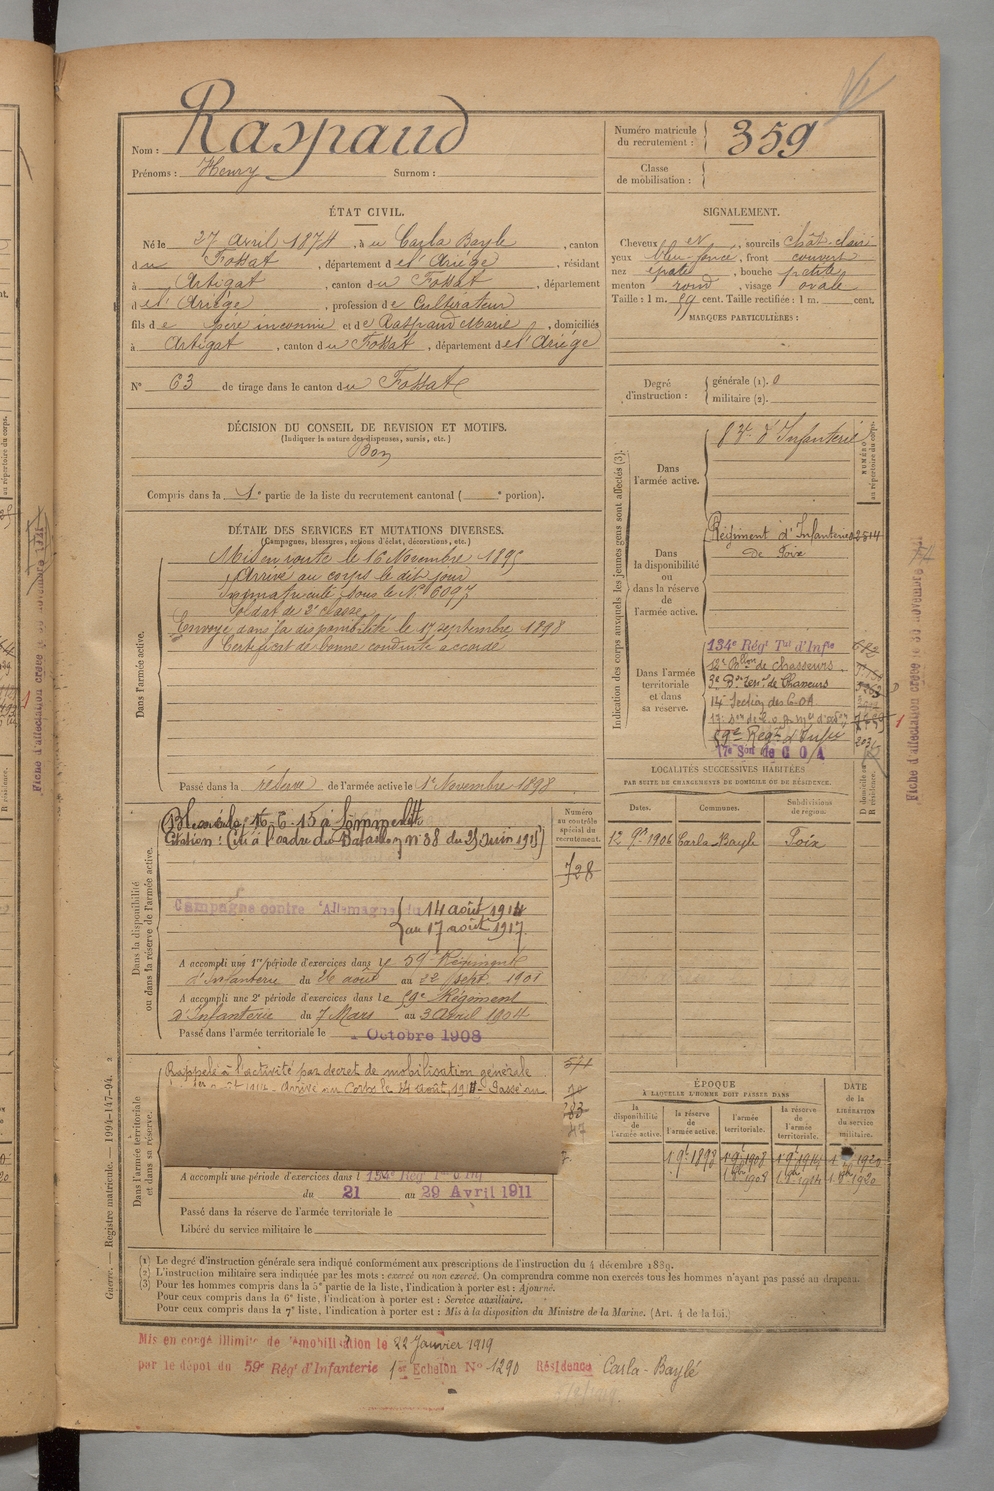 Nom : Raspaud
Prénoms : Henry Surnom :
Numéro matricule du recrutement : 359
Classe de mobilisation :
ÉTAT CIVIL.
Né le 27 Avril 1874, à u Carla Bayle, canton
du Fossat, département de l'Ariège, résidant
à Artigat, canton du Fossat, département
de l'Ariège, profession de Cultivateur
fils de père inconnu et de Raspaud Marie, domiciliés
à Artigat, canton du Fossat, département de l'Ariège
N° 63 de tirage dans le canton du Fossat
SIGNALEMENT.
Cheveux et, sourcils chât-clair
yeux bleu foncé, front couvert
nez épaté, bouche petite
menton rond, visage ovale
Taille : 1 m. 59 cent. Taille rectifiée : 1 m. cent.
MARQUES PARTICULIÈRES :
Degré d'instruction : générale (1). 0
militaire (2).
DÉCISION DU CONSEIL DE REVISION ET MOTIFS.
(Indiquer la nature des dispenses, sursis, etc.)
Bon
Compris dans la 1e partie de la liste du recrutement cantonal ( e portion).
DÉTAIL DES SERVICES ET MUTATIONS DIVERSES.
(Campagnes, blessures, actions d'éclat, décorations, etc.)
Dans l'armée active.
Mis en route le 16 Novembre 1895
Arrivé au corps le dit jour
Immatriculé sous le N° 6097
Soldat de 2e classe
Envoyé dans la disponibilité le 17 septembre 1898
Certificat de bonne conduite accordé
Passé dans la réserve de l'armée active le 1er Novembre 1898
Indication des corps auxquels les jeunes gens sont affectés (3).
NUMÉRO au répertoire du corps.
Dans l'armée active.
83e d'Infanterie
Dans la disponibilité ou dans la réserve de l'armée active.
Régiment d'Infanterie
de Foix
Dans l'armée territoriale et dans sa réserve.
134e Régt Tal d'Infie
12e Bllon de chasseurs
3e Bon Terral de Chasseurs
14e Section des C.O.A
59e Régt d'Infie
17e Son de C O A
Dans la disponibilité ou dans la réserve de l'armée active.
Blessé le 16-6-15 à Sommerlitt
Citation : Cité à l'ordre du Bataillon n° 38 du 25 Juin 1915
Campagne contre l'Allemagne du 14 août 1914
au 17 août 1917
A accompli une 1re période d'exercices dans le 59e Régiment
d'Infanterie du 26 août au 22 sept. 1901
A accompli une 2e période d'exercices dans le 59e Régiment
d'Infanterie du 7 Mars au 3 Avril 1904
Passé dans l'armée territoriale le 1 Octobre 1908
Numéro au contrôle spécial du recrutement.
728
LOCALITÉS SUCCESSIVES HABITÉES
PAR SUITE DE CHANGEMENTS DE DOMICILE OU DE RÉSIDENCE.
Dates. Communes. Subdivisions de région. D domicile ou R résidence.
12 9bre 1906 Carla-Bayle Foix
Dans l'armée territoriale et dans sa réserve.
Rappelé à l'activité par décret de mobilisation générale
du 1er août 1914 - Arrivé au Corps le 14 août 1914 - Passé au
A accompli une période d'exercices dans l 134e Régt Tal d'Inf
du 21 au 29 Avril 1911
Passé dans la réserve de l'armée territoriale le
Libéré du service militaire le
ÉPOQUE
À LAQUELLE L'HOMME DOIT PASSER DANS
la disponibilité de l'armée active. la réserve de l'armée active. l'armée territoriale. la réserve de l'armée territoriale. DATE de la LIBÉRATION du service militaire.
1 9bre 1898 1 9bre 1908 1 9bre 1914 1 9bre 1920
1 8bre 1908 1 8bre 1914 1 8bre 1920
(1) Le degré d'instruction générale sera indiqué conformément aux prescriptions de l'instruction du 4 décembre 1889.
(2) L'instruction militaire sera indiquée par les mots : exercé ou non exercé. On comprendra comme non exercés tous les hommes n'ayant pas passé au drapeau.
(3) Pour les hommes compris dans la 5e partie de la liste, l'indication à porter est : Ajourné.
Pour ceux compris dans la 6e liste, l'indication à porter est : Service auxiliaire.
Pour ceux compris dans la 7e liste, l'indication à porter est : Mis à la disposition du Ministre de la Marine. (Art. 4 de la loi.)
Guerre. — Registre matricule. — 1994-147-94.
Mis en congé illimité de démobilisation le 22 Janvier 1919
par le dépôt du 59e Régt d'Infanterie 1er Echelon N° 1290 Résidence Carla-Baylé
Fiche d'affectation créée le 30 novembre